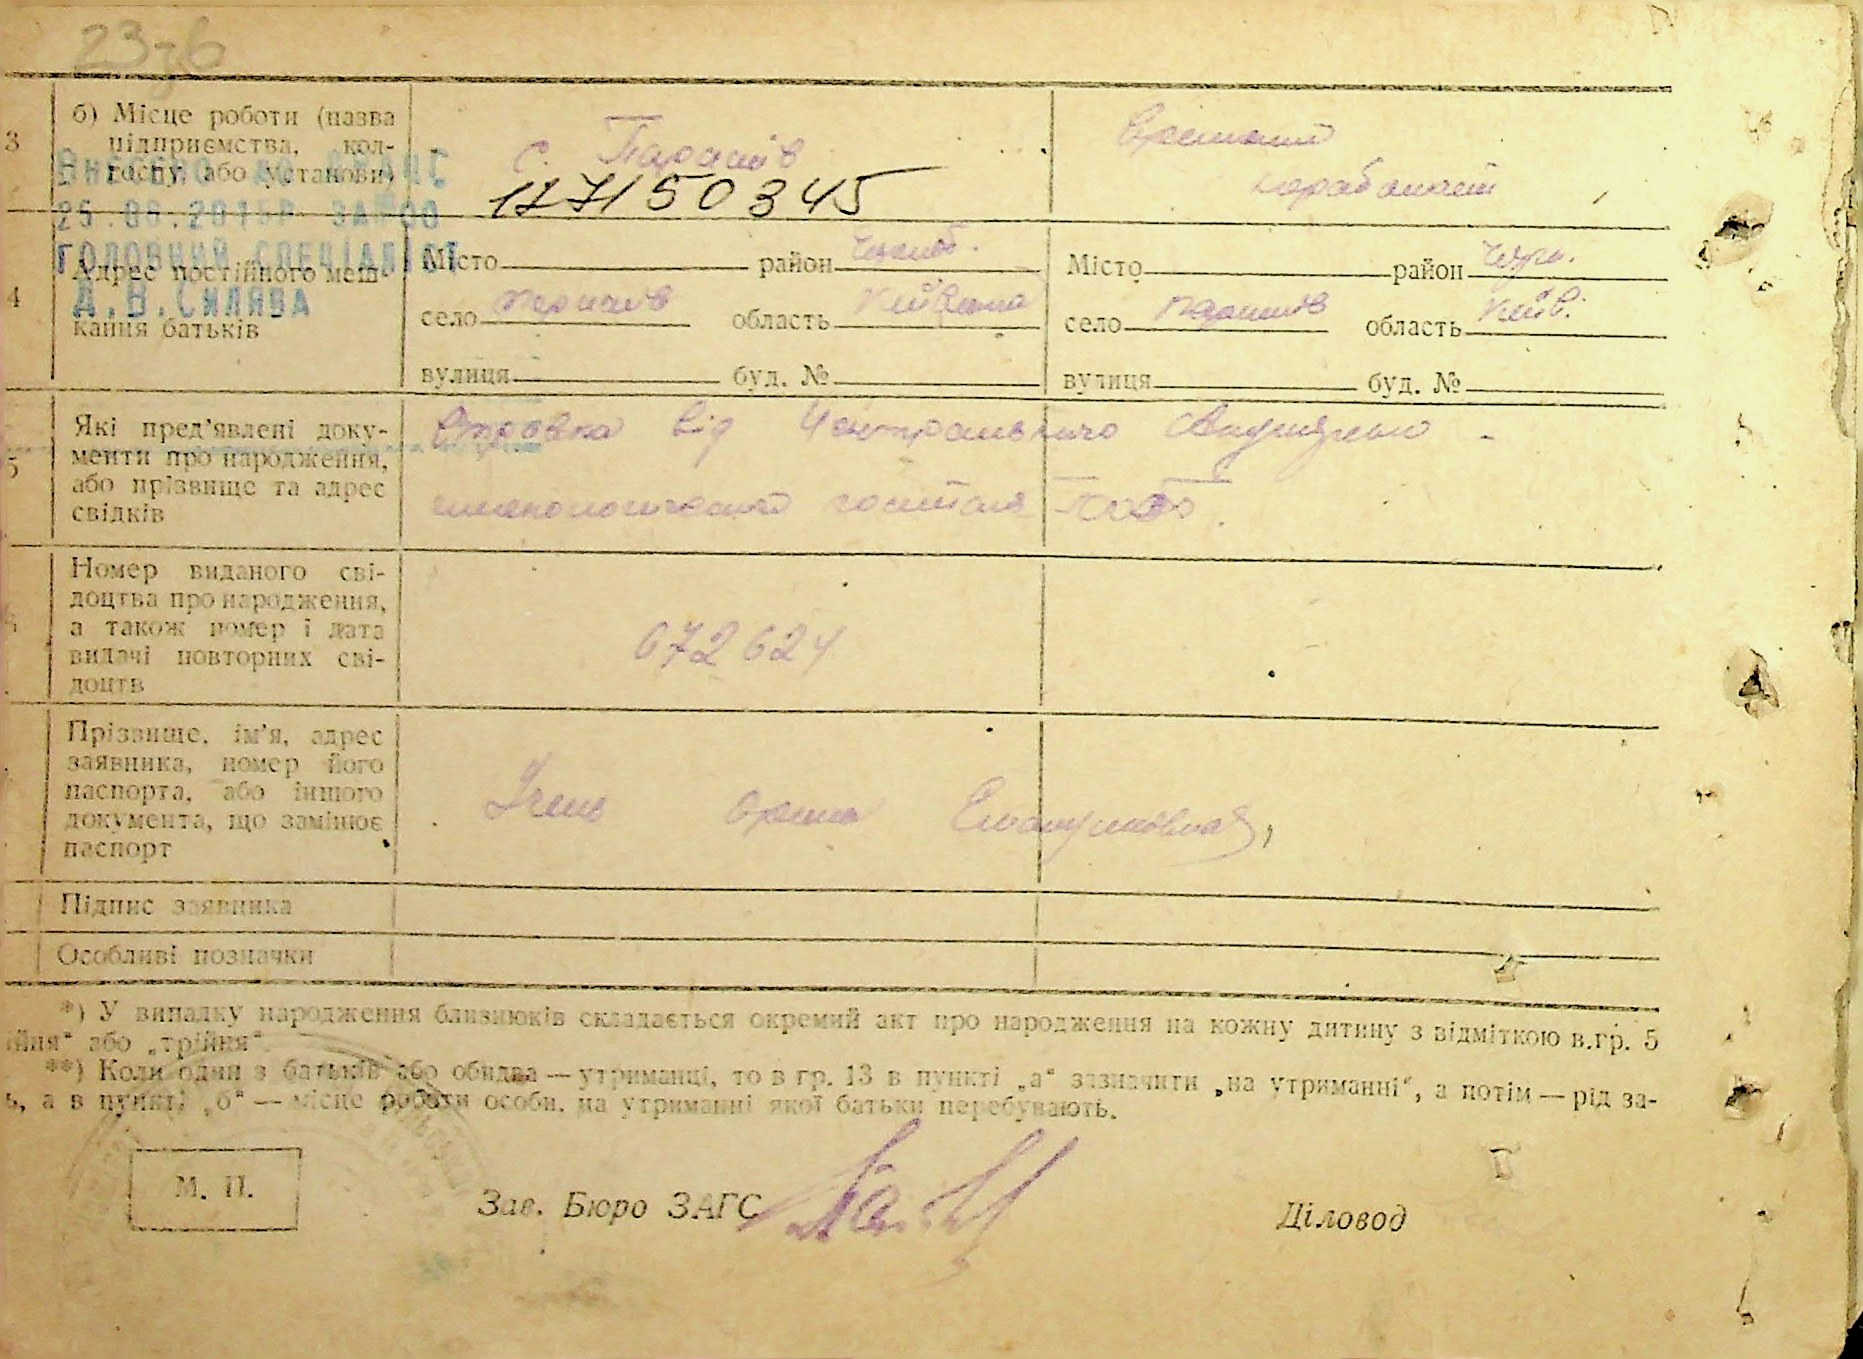 23зв
3 б) Місце роботи (назва
підприємства, кол-
госпу, або установи)
с. Паришів
117150345
Внесено до ДРАЦС
ГОЛОВНИЙ СПЕЦІАЛІСТ
Д.В.СИЛЯВА
4 Адрес постійного меш-
кання батьків
Місто район
село Паришів область Київська
вулиця буд. №
Місто район Чорн.
село Паришів область Київ.
вулиця буд. №
5 Які пред'явлені доку-
менти про народження,
або прізвище та адрес
свідків
Справка від Центрального
госпіталя
Номер виданого сві-
доцтва про народження,
а також номер і дата
видачі повторних сві-
доцтв
672624
Прізвище, ім'я, адрес
заявника, номер його
паспорта, або іншого
документа, що замінює
паспорт
Підпис заявника
Особливі позначки
*) У випадку народження близнюків складається окремий акт про народження на кожну дитину з відміткою в.гр. 5
або „трійня“.
**) Коли один з батьків або обидва — утриманці, то в гр. 13 в пункті „а“ зазначити „на утриманні“, а потім — рід за-
а в пункті „б“ — місце роботи особи, на утриманні якої батьки перебувають.
М. П.
Зав. Бюро ЗАГС
Діловод